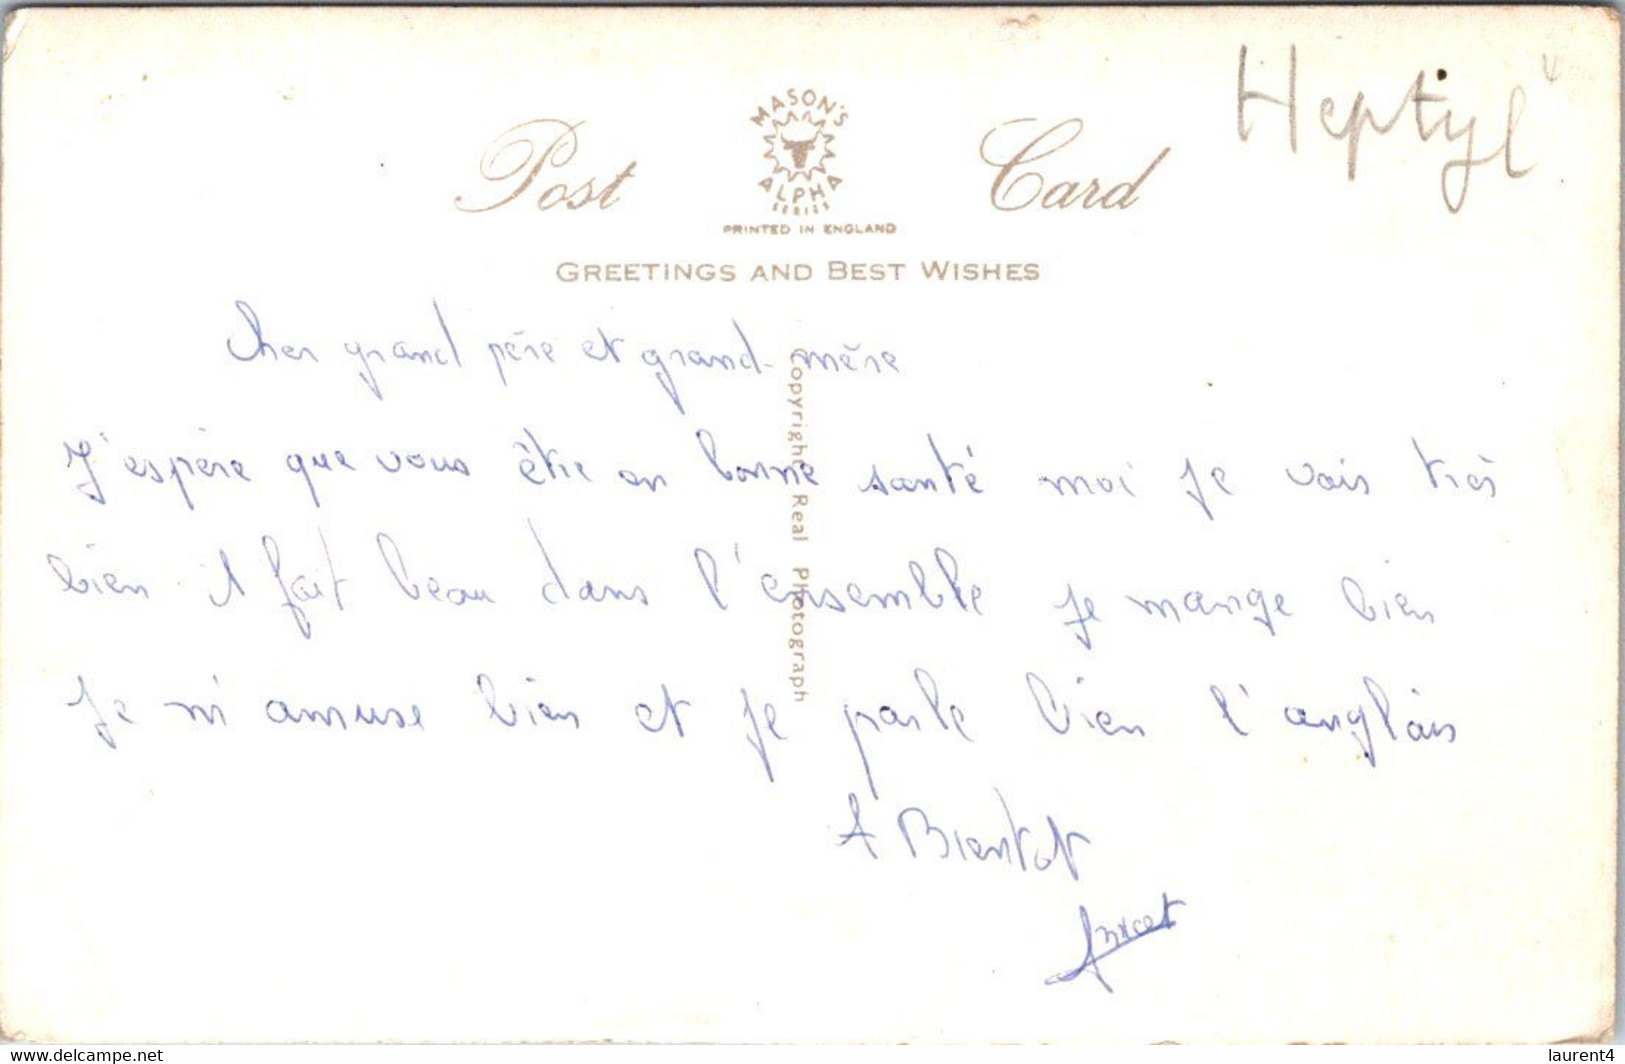 Heptyl
MASON'S
ALPHA
SERIES
Post Card
PRINTED IN ENGLAND
GREETINGS AND BEST WISHES
Cher grand père et grand-mère
J'espère que vous être en bonne santé moi je vais très
bien il fait beau dans l'ensemble je mange bien
je m'amuse bien et je parle bien l'anglais
A Bientot
Copyright Real Photograph
www.delcampe.net
laurent4